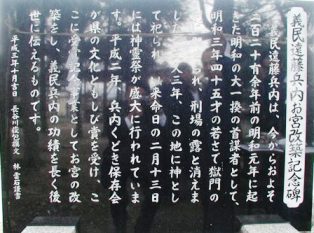 義民遠藤兵内お宮改築記念碑
義民遠藤兵内は、今からおよそ
二百二十有余年前の明和元年に起
きた明和の大一揆の首謀者として、
明和三年四十五才の若さで獄門の
され、刑場の露と消えま
した。 人三年、この地に神とし
て祀られ、以来命日の二月十三日
には神霊祭が盛大に行われていま
す。平成二年、兵内くどき保存会
が県の文化ともしび賞を受け、こ
こに 記念事業としてお宮の改
築をし、義民兵内の功績を長く後
世に伝えるものです。
平成三年十月吉日
長谷川 撰文
林 雲石謹書